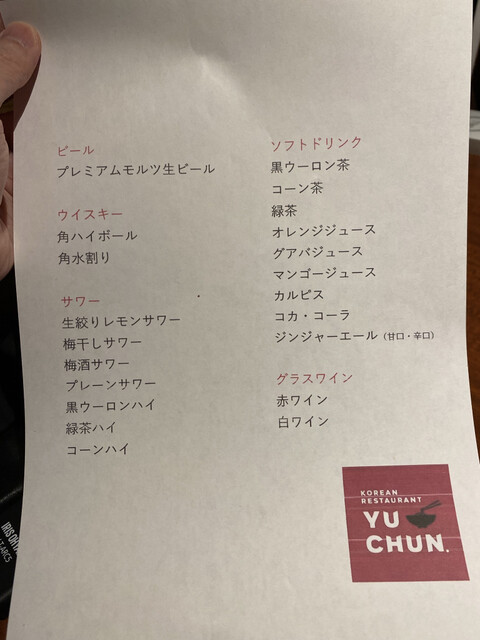 ビール
プレミアムモルツ生ビール
ウイスキー
角ハイボール
角水割り
サワー
生絞りレモンサワー
梅干しサワー
梅酒サワー
プレーンサワー
黒ウーロンハイ
緑茶ハイ
コーンハイ
ソフトドリンク
黒ウーロン茶
コーン茶
緑茶
オレンジジュース
グアバジュース
マンゴージュース
カルピス
コカ・コーラ
ジンジャーエール（甘口・辛口）
グラスワイン
赤ワイン
白ワイン
KOREAN
RESTAURANT
YU
CHUN.